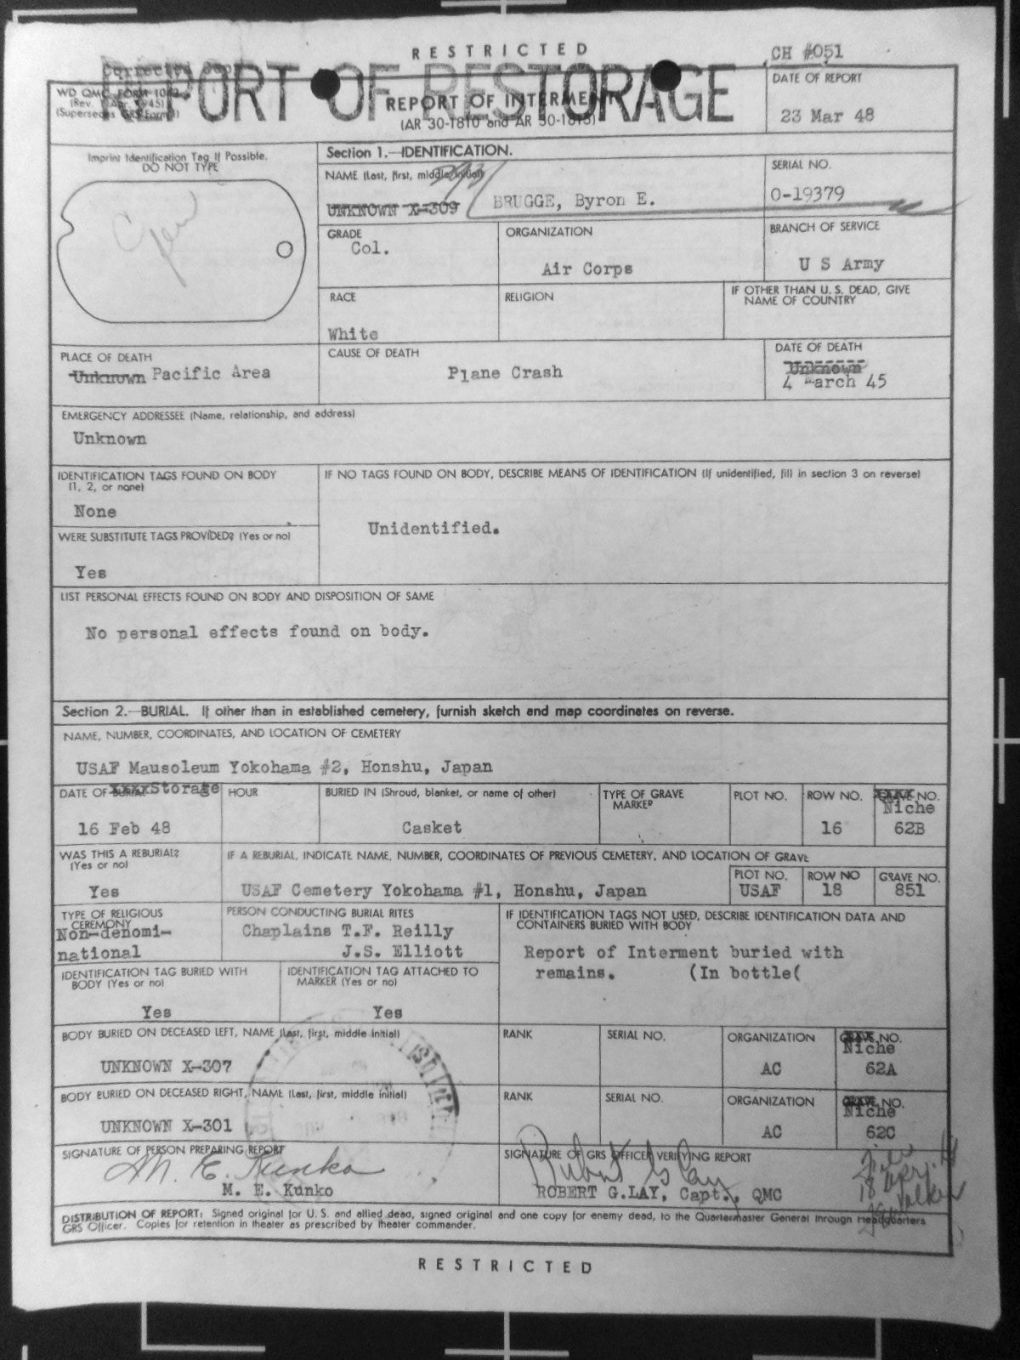 RESTRICTED
CH #051
REPORT OF RESTORAGE
WD QMC FORM 1042
REPORT OF INTERMENT
(AR 30-1810 and AR 30-1815)
DATE OF REPORT
23 Mar 48
Imprint Identification Tag If Possible.
DO NOT TYPE
Section 1.—IDENTIFICATION.
NAME (Last, first, middle initial)
UNKNOWN X-309 BRUGGE, Byron E.
SERIAL NO.
O-19379
GRADE
Col.
ORGANIZATION
Air Corps
BRANCH OF SERVICE
U S Army
RACE
White
RELIGION
IF OTHER THAN U. S. DEAD, GIVE
NAME OF COUNTRY
PLACE OF DEATH
Unknown Pacific Area
CAUSE OF DEATH
Plane Crash
DATE OF DEATH
Unknown
4 March 45
EMERGENCY ADDRESSEE (Name, relationship, and address)
Unknown
IDENTIFICATION TAGS FOUND ON BODY
(1, 2, or none)
None
IF NO TAGS FOUND ON BODY, DESCRIBE MEANS OF IDENTIFICATION (If unidentified, fill in section 3 on reverse)
Unidentified.
WERE SUBSTITUTE TAGS PROVIDED? (Yes or no)
Yes
LIST PERSONAL EFFECTS FOUND ON BODY AND DISPOSITION OF SAME
No personal effects found on body.
Section 2.—BURIAL. If other than in established cemetery, furnish sketch and map coordinates on reverse.
NAME, NUMBER, COORDINATES, AND LOCATION OF CEMETERY
USAF Mausoleum Yokohama #2, Honshu, Japan
DATE OF xxxxStorage
16 Feb 48
HOUR
BURIED IN (Shroud, blanket, or name of other)
Casket
TYPE OF GRAVE
MARKER
PLOT NO.
ROW NO.
16
NO.
Niche
62B
WAS THIS A REBURIAL?
(Yes or no)
Yes
IF A REBURIAL, INDICATE NAME, NUMBER, COORDINATES OF PREVIOUS CEMETERY, AND LOCATION OF GRAVE
USAF Cemetery Yokohama #1, Honshu, Japan
PLOT NO.
USAF
ROW NO
18
GRAVE NO.
851
TYPE OF RELIGIOUS
CEREMONY
Non-denomi-
national
PERSON CONDUCTING BURIAL RITES
Chaplains T.F. Reilly
J.S. Elliott
IF IDENTIFICATION TAGS NOT USED, DESCRIBE IDENTIFICATION DATA AND
CONTAINERS BURIED WITH BODY
Report of Interment buried with
remains. (In bottle(
IDENTIFICATION TAG BURIED WITH
BODY (Yes or no)
Yes
IDENTIFICATION TAG ATTACHED TO
MARKER (Yes or no)
Yes
BODY BURIED ON DECEASED LEFT, NAME (Last, first, middle initial)
UNKNOWN X-307
RANK
SERIAL NO.
ORGANIZATION
AC
NO.
Niche
62A
BODY BURIED ON DECEASED RIGHT, NAME (Last, first, middle initial)
UNKNOWN X-301
RANK
SERIAL NO.
ORGANIZATION
AC
NO.
Niche
62C
SIGNATURE OF PERSON PREPARING REPORT
M. E. Kunko
M. E. Kunko
SIGNATURE OF GRS OFFICER VERIFYING REPORT
Robert G Lay
ROBERT G.LAY, Capt., QMC
DISTRIBUTION OF REPORT: Signed original for U. S. and allied dead, signed original and one copy for enemy dead, to the Quartermaster General through Headquarters
GRS Officer. Copies for retention in theater as prescribed by theater commander.
RESTRICTED